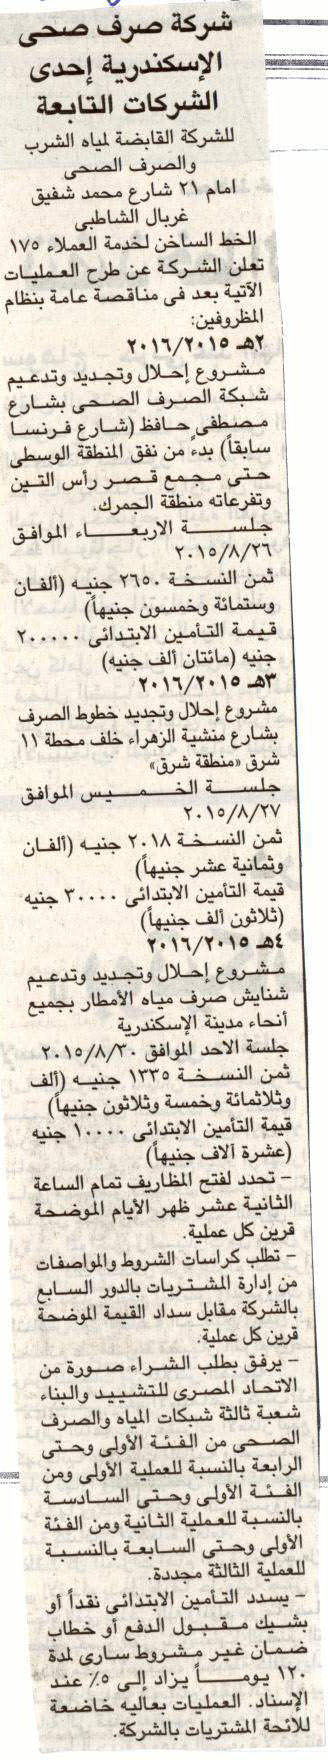 شركة صرف صحى
الإسكندرية إحدى
الشركات التابعة
للشركة القابضة لمياه الشرب
والصرف الصحى
امام ٢١ شارع محمد شفيق
غربال الشاطبى
الخط الساخن لخدمة العملاء ١٧٥
تعلن الشركة عن طرح العمليات
الآتية بعد فى مناقصة عامة بنظام
المظروفين:
٢هـ ٢٠١٦/٢٠١٥
مشروع إحلال وتجديد وتدعيم
شبكة الصرف الصحى بشارع
مصطفى حافظ (شارع فرنسا
سابقاً) بدء من نفق المنطقة الوسطى
حتى مجمع قصر رأس التين
وتفرعاته منطقة الجمرك.
جلسة الاربعاء الموافق
٢٠١٥/٨/٢٦
ثمن النسخة ٢٦٥٠ جنيه (ألفان
وستمائة وخمسون جنيهاً)
قيمة التأمين الابتدائى ٢٠٠٠٠٠
جنيه (مائتان ألف جنيه)
٣هـ ٢٠١٦/٢٠١٥
مشروع إحلال وتجديد خطوط الصرف
بشارع منشية الزهراء خلف محطة ١١
شرق «منطقة شرق»
جلسة الخميس الموافق
٢٠١٥/٨/٢٧
ثمن النسخة ٢٠١٨ جنيه (ألفان
وثمانية عشر جنيهاً)
قيمة التأمين الابتدائى ٣٠٠٠٠ جنيه
(ثلاثون ألف جنيهاً)
٤هـ ٢٠١٦/٢٠١٥
مشروع إحلال وتجديد وتدعيم
شنايش صرف مياه الأمطار بجميع
أنحاء مدينة الإسكندرية
جلسة الاحد الموافق ٢٠١٥/٨/٣٠
ثمن النسخة ١٣٣٥ جنيه (ألف
وثلاثمائة وخمسة وثلاثون جنيهاً)
قيمة التأمين الابتدائى ١٠٠٠٠ جنيه
(عشرة آلاف جنيهاً)
– تحدد لفتح المظاريف تمام الساعة
الثانية عشر ظهر الأيام الموضحة
قرين كل عملية.
– تطلب كراسات الشروط والمواصفات
من إدارة المشتريات بالدور السابع
بالشركة مقابل سداد القيمة الموضحة
قرين كل عملية.
– يرفق بطلب الشراء صورة من
الاتحاد المصرى للتشييد والبناء
شعبة ثالثة شبكات المياه والصرف
الصحى من الفئة الأولى وحتى
الرابعة بالنسبة للعملية الأولى ومن
الفئة الأولى وحتى السادسة
بالنسبة للعملية الثانية ومن الفئة
الأولى وحتى السابعة بالنسبة
للعملية الثالثة مجددة.
– يسدد التأمين الابتدائى نقداً أو
بشيك مقبول الدفع أو خطاب
ضمان غير مشروط سارى لمدة
١٢٠ يوماً يزاد إلى ٥٪ عند
الإسناد. العمليات بعاليه خاضعة
للائحة المشتريات بالشركة.